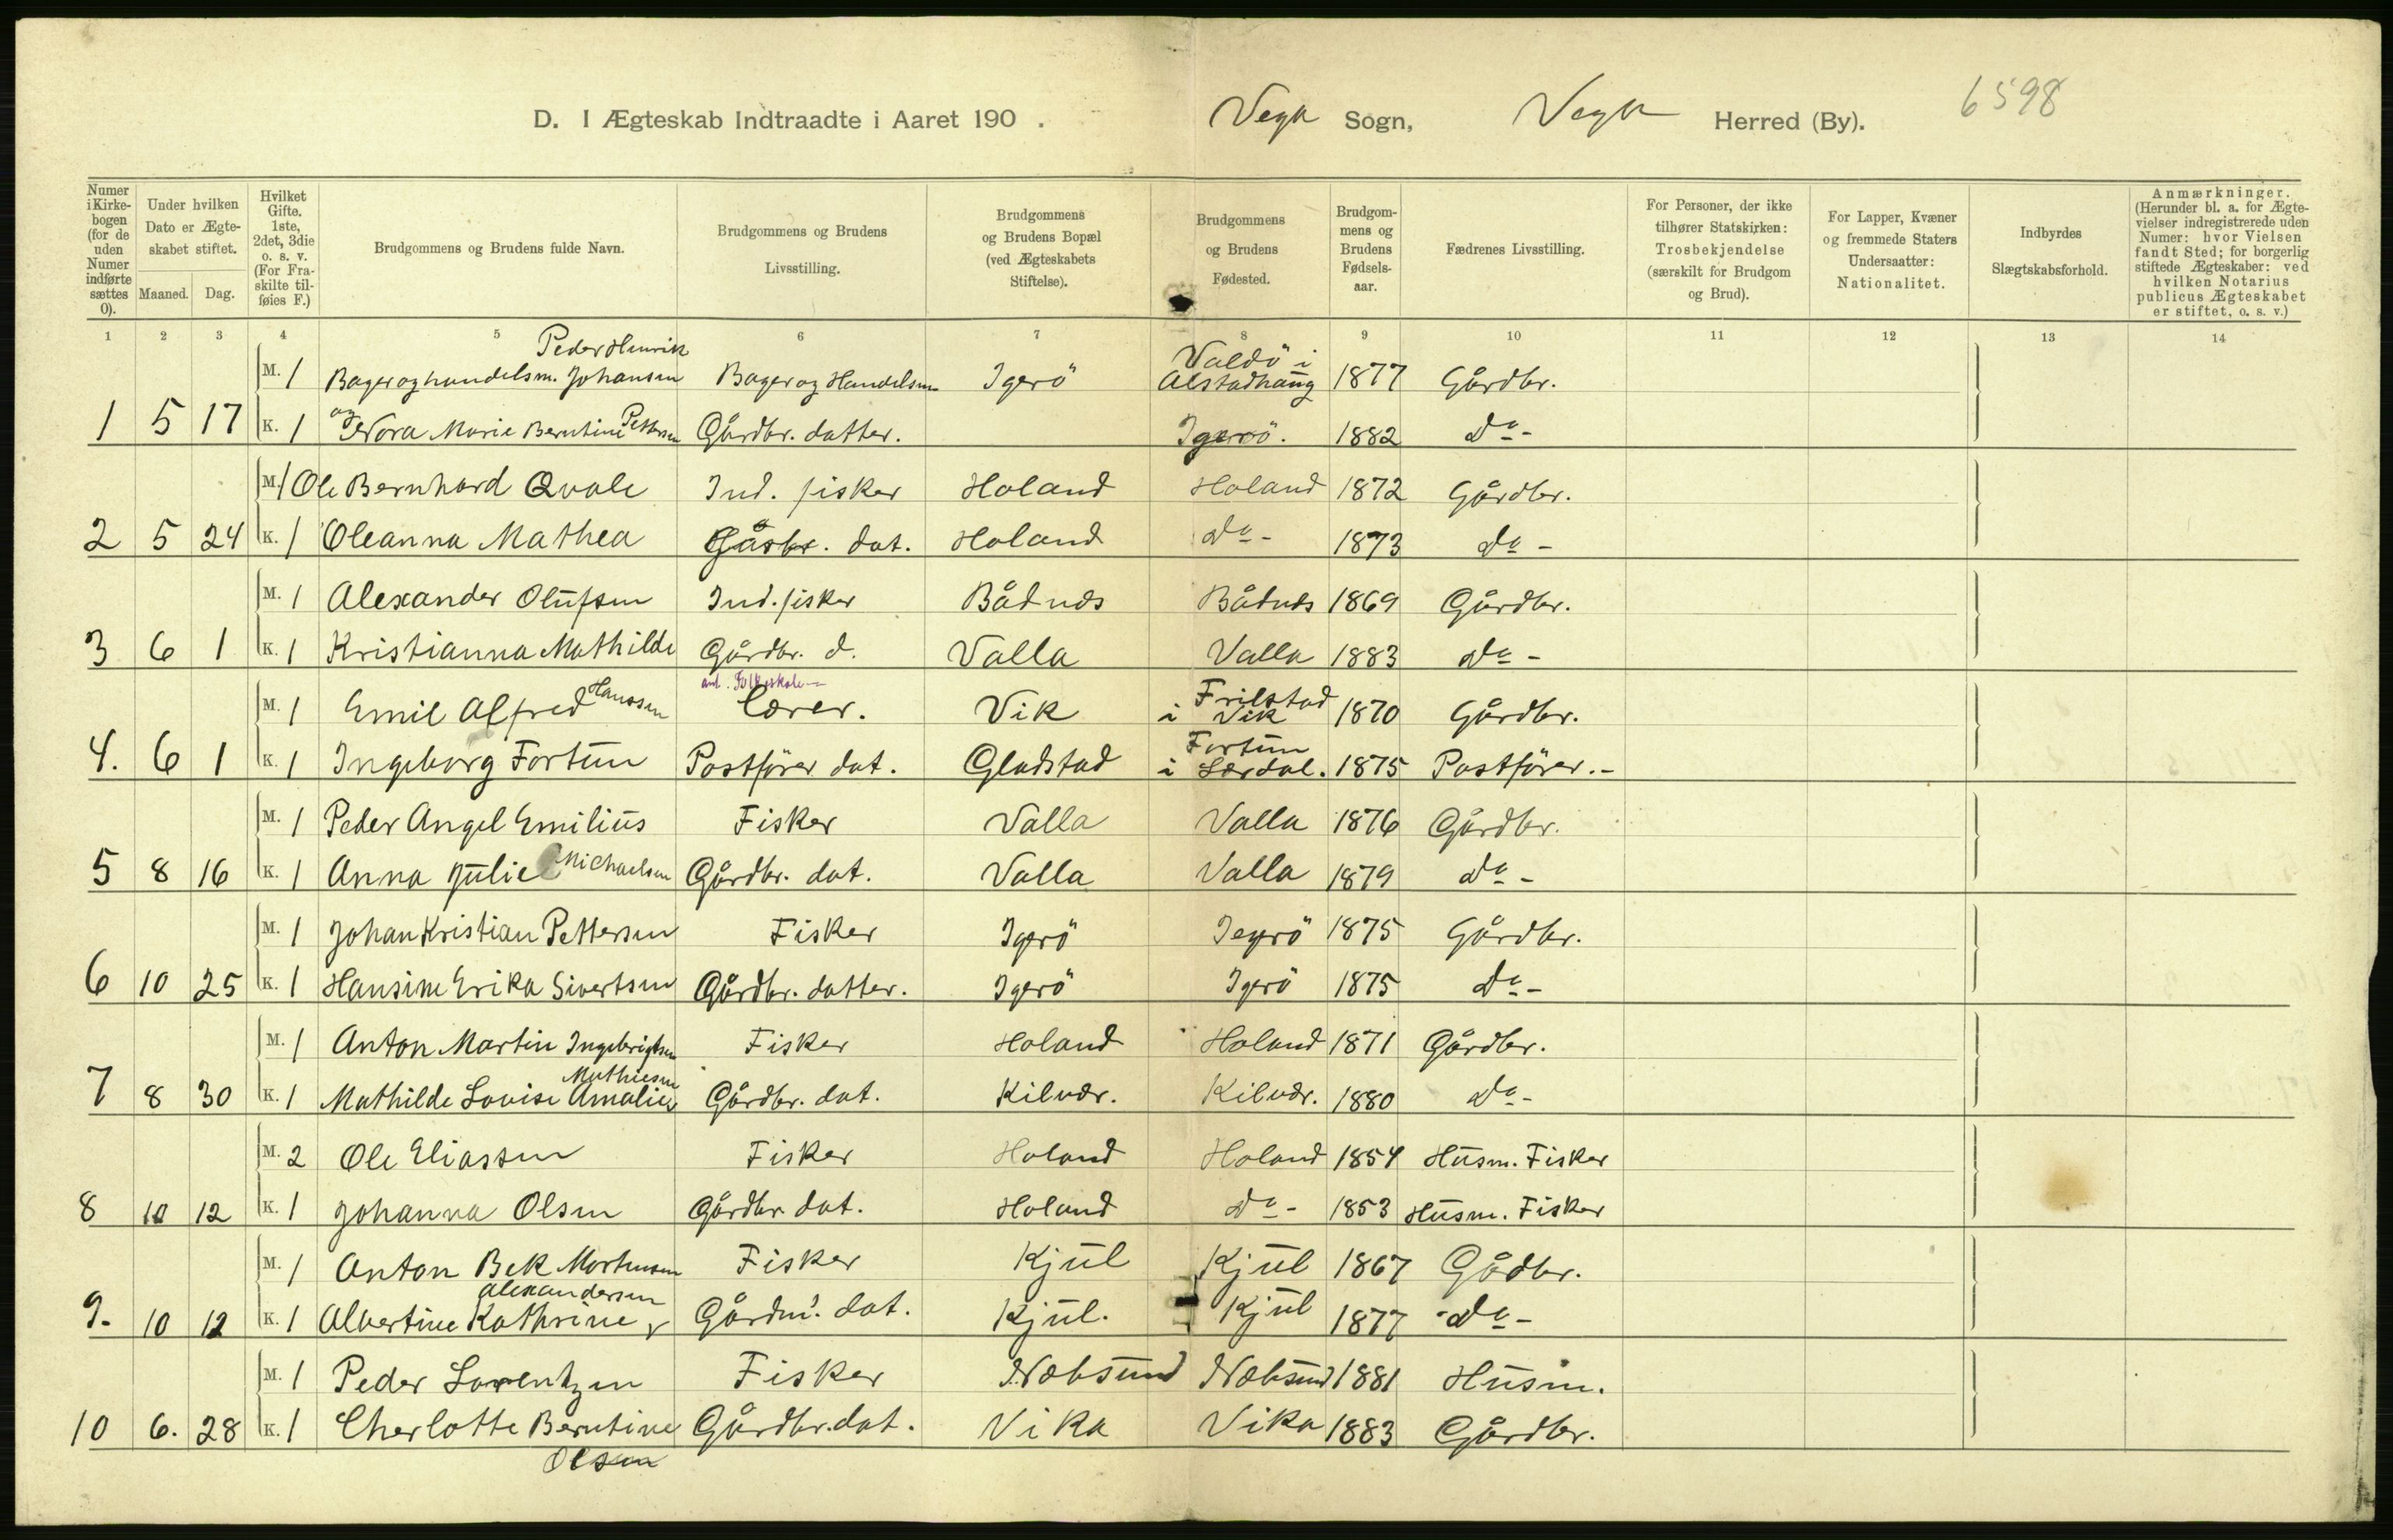 D. I Ægteskab Indtraadte i Aaret 190 . Vega Sogn, Vega Herred (By). 6598
Numer i Kirke-bogen (for de uden Numer indførte sættes 0). Under hvilken Dato er Ægte-skabet stiftet. Maaned. Dag. Hvilket Gifte. 1ste, 2det, 3die o. s. v. (For Fra-skilte til-føies F.) Brudgommens og Brudens fulde Navn. Brudgommens og Brudens Livsstilling. Brudgommens og Brudens Bopæl (ved Ægteskabets Stiftelse). Brudgommens og Brudens Fødested. Brudgom-mens og Brudens Fødsels-aar. Fædrenes Livsstilling. For Personer, der ikke tilhører Statskirken: Trosbekjendelse (særskilt for Brudgom og Brud). For Lapper, Kvæner og fremmede Staters Undersaatter: Nationalitet. Indbyrdes Slægtskabsforhold. Anmærkninger. (Herunder bl. a. for Ægte-vielser indregistrerede uden Numer: hvor Vielsen fandt Sted; for borgerlig stiftede Ægteskaber: ved hvilken Notarius publicus Ægteskabet er stiftet, o. s. v.)
1 2 3 4 5 6 7 8 9 10 11 12 13 14
Peder Henrik
M. 1 Bager og handelsm. Johansen Bager og Handelsm Igerö Valdö i Alstadhaug 1877 Gårdbr.
1 5 17 K. 1 og Nora Marie Berntine Pettersen Gårdbr. datter. Igerö. 1882 Do -
M. 1 Ole Bernhard Qvale Ind. fisker Holand Holand 1872 Gårdbr.
2 5 24 K. 1 Oleanna Mathea dat. Holand Do - 1873 Do -
M. 1 Alexander Olufsen Ind. fisker Båtnes Båtnes 1869 Gårdbr.
3 6 1 K. 1 Kristianna Mathilde Gårdbr. d. Valla Valla 1883 Do -
M. 1 Emil Alfred Hanssen Lærer. Vik i Vik 1870 Gårdbr.
4. 6 1 K. 1 Ingeborg Fortun Postfører dat. Gladstad Fortun i Lærdal. 1875 Postfører. -
M. 1 Peder Angel Emilius Fisker Valla Valla 1876 Gårdbr.
5 8 16 K. 1 Anna Julie Michaelsen Gårdbr. dat. Valla Valla 1879 Do -
M. 1 Johan Kristian Pettersen Fisker Igerö Igerö 1875 Gårdbr.
6 10 25 K. 1 Hansine Erika Sivertsen Gårdbr. datter. Igerö Igerö 1875 Do -
M. 1 Anton Martin Ingebrigtsen Fisker Holand Holand 1871 Gårdbr.
Mathiesen
7 8 30 K. 1 Mathilde Lovise Amalie Gårdbr. dat. Kilvær. Kilvær. 1880 Do -
M. 2 Ole Eliassen Fisker Holand Holand 1854 Husm. Fisker
8 10 12 K. 1 Johanna Olsen Gårdbr dat. Holand Do - 1853 Husm. Fisker
M. 1 Anton Bek Mortensen Fisker Kjul Kjul 1867 Gådbr.
Alexandersen
9. 10 12 K. 1 Albertine Kathrine dat. Kjul. Kjul 1877 Do -
M. 1 Peder Lorentzen Fisker 1881 Husm.
10 6. 28 K. 1 Cherlotte Berntine Gårdbr. dat. Vika Vika 1883 Gårdbr.
Olsen